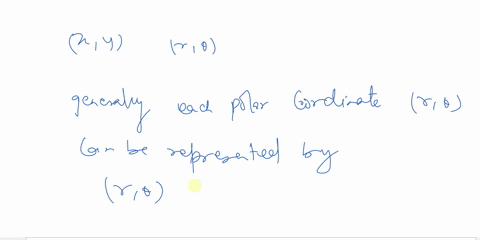 (x, y) (r, θ)
generally each polar Cordinate (r, θ)
Can be represented by
(r, θ)